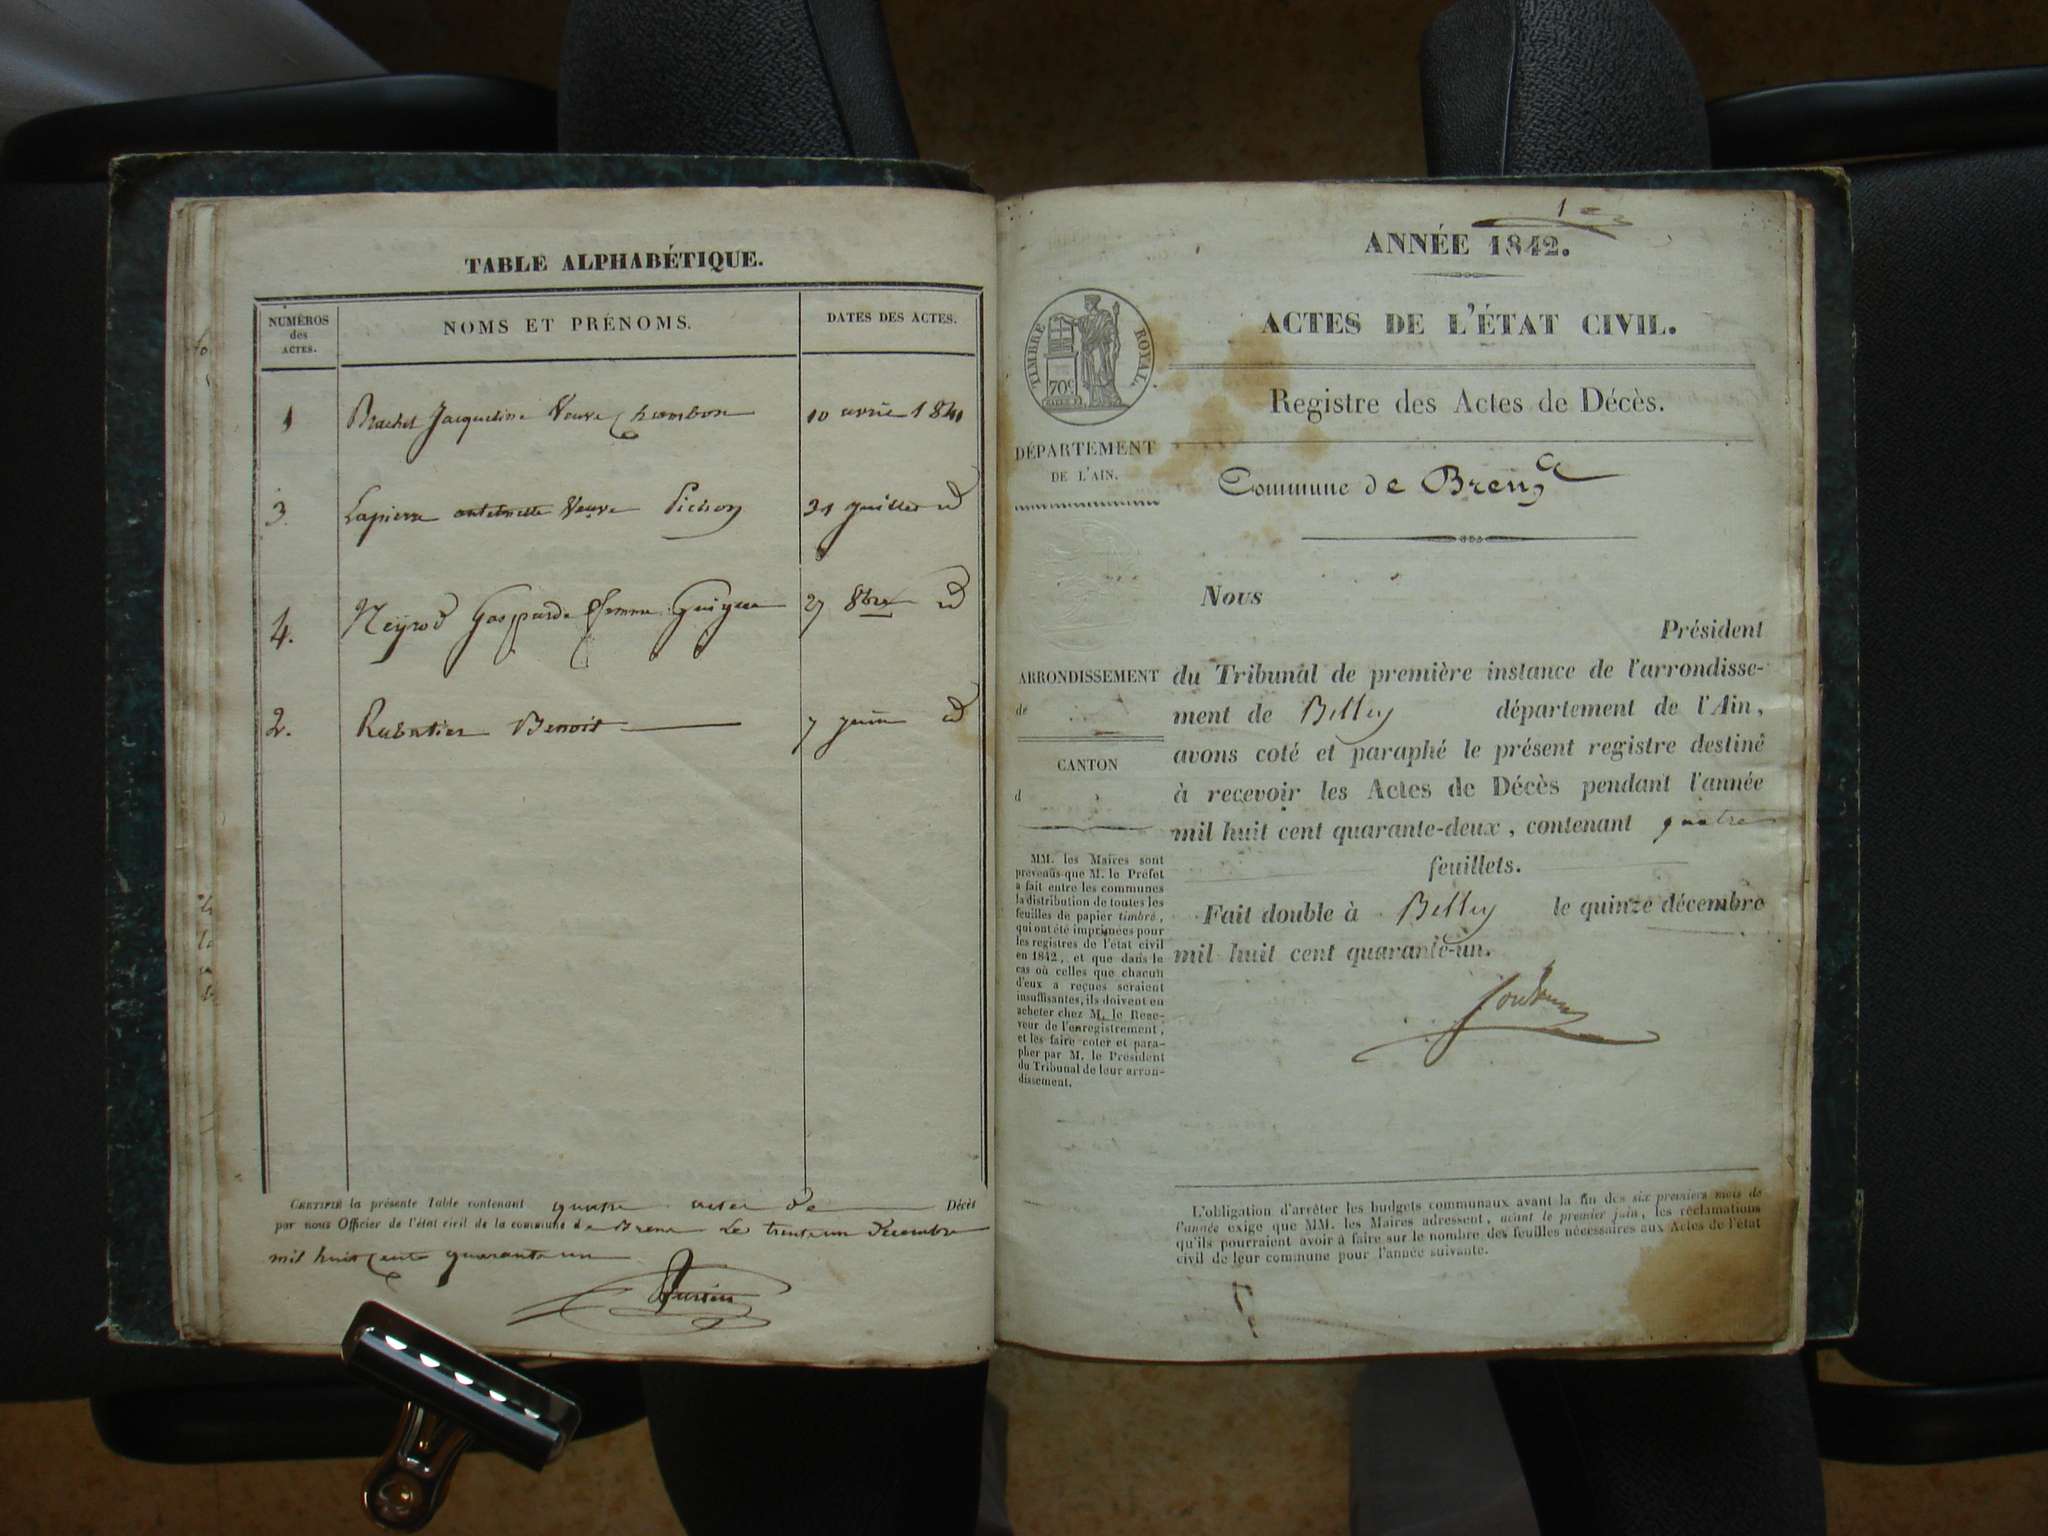 TABLE ALPHABÉTIQUE.
NUMÉROS
des
ACTES.
NOMS ET PRÉNOMS.
DATES DES ACTES.
1 Brachet Jacqueline Veuve Chambon 10 avril 1841
3. Lapierre antoinette Veuve Pichon 31 juillet id
4. Neyrod Gasparde femme Guigue 27 8bre id
2. Rubatier Benoit 7 juin id
CERTIFIÉ la présente Table contenant quatre actes de Décès
par nous Officier de l'état civil de la commune de Brens Le trente un Décembre
mil huit cent quarante un
1er
ANNÉE 1842.
ACTES DE L'ÉTAT CIVIL.
Registre des Actes de Décès.
TIMBRE ROYAL.
70c
DÉPARTEMENT
DE L'AIN.
Commune de Brens
Nous
Président
ARRONDISSEMENT
de
CANTON
d
du Tribunal de première instance de l'arrondisse-
ment de Belley département de l'Ain,
avons coté et paraphé le présent registre destiné
à recevoir les Actes de Décès pendant l'année
mil huit cent quarante-deux, contenant quatre
feuillets.
Fait double à Belley le quinze décembre
mil huit cent quarante-un.
MM. les Maires sont
prévenus que M. le Préfet
a fait entre les communes
la distribution de toutes les
feuilles de papier timbré,
qui ont été imprimées pour
les registres de l'état civil
en 1842, et que dans le
cas où celles que chacun
d'eux a reçues seraient
insuffisantes, ils doivent en
acheter chez M. le Rece-
veur de l'enregistrement,
et les faire coter et para-
pher par M. le Président
du Tribunal de leur arron-
dissement.
L'obligation d'arrêter les budgets communaux avant la fin des six premiers mois de
l'année exige que MM. les Maires adressent, avant le premier juin, les réclamations
qu'ils pourraient avoir à faire sur le nombre des feuilles nécessaires aux Actes de l'état
civil de leur commune pour l'année suivante.